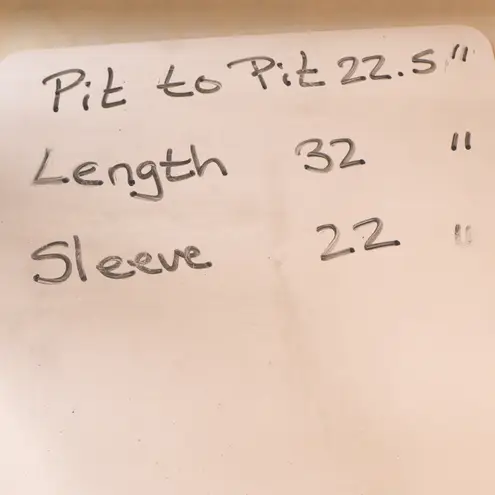 Pit to Pit 22.5"
Length 32 "
Sleeve 22 "